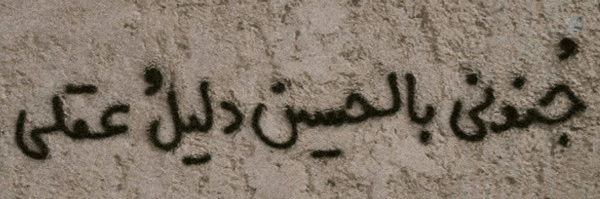 جُنوني بالحسين دليلُ عقلي